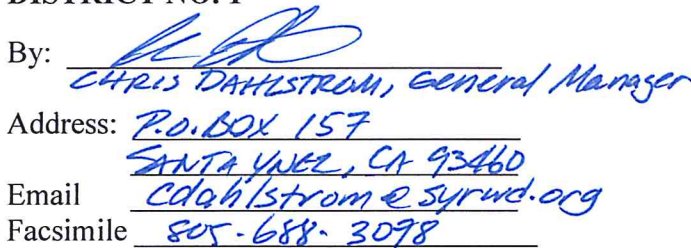 DISTRICT NO. 1
By:
CHRIS DAHLSTROM, General Manager
Address: P.O. BOX 157
SANTA YNEZ, CA 93460
Email cdahlstrom@syrwd.org
Facsimile 805-688-3078